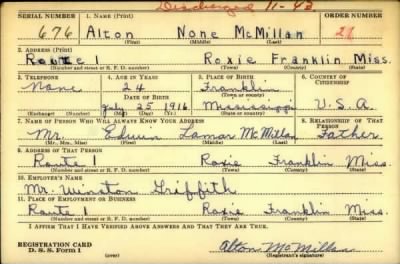 Discharged 11-43
SERIAL NUMBER 1. NAME (Print) ORDER NUMBER
676 Alton None McMillan 21
(First) (Middle) (Last)
2. ADDRESS (Print)
Route 1 Roxie Franklin Miss.
(Number and street or R. F. D. number) (Town) (County) (State)
3. TELEPHONE 4. AGE IN YEARS 5. PLACE OF BIRTH 6. COUNTRY OF CITIZENSHIP
None 24 Franklin
DATE OF BIRTH (Town or county)
July 25 1916 Mississippi U.S.A.
(Exchange) (Number) (Mo.) (Day) (Yr.) (State or country)
7. NAME OF PERSON WHO WILL ALWAYS KNOW YOUR ADDRESS 8. RELATIONSHIP OF THAT PERSON
Mr. Edwin Lamar McMillan Father
(Mr., Mrs., Miss) (First) (Middle) (Last)
9. ADDRESS OF THAT PERSON
Route 1 Roxie Franklin Miss.
(Number and street or R. F. D. number) (Town) (County) (State)
10. EMPLOYER'S NAME
Mr. Winston Griffith
11. PLACE OF EMPLOYMENT OR BUSINESS
Route 1 Roxie Franklin Miss.
(Number and street or R. F. D. number) (Town) (County) (State)
I AFFIRM THAT I HAVE VERIFIED ABOVE ANSWERS AND THAT THEY ARE TRUE.
REGISTRATION CARD
D. S. S. Form 1
Alton McMillan
(Registrant's signature)